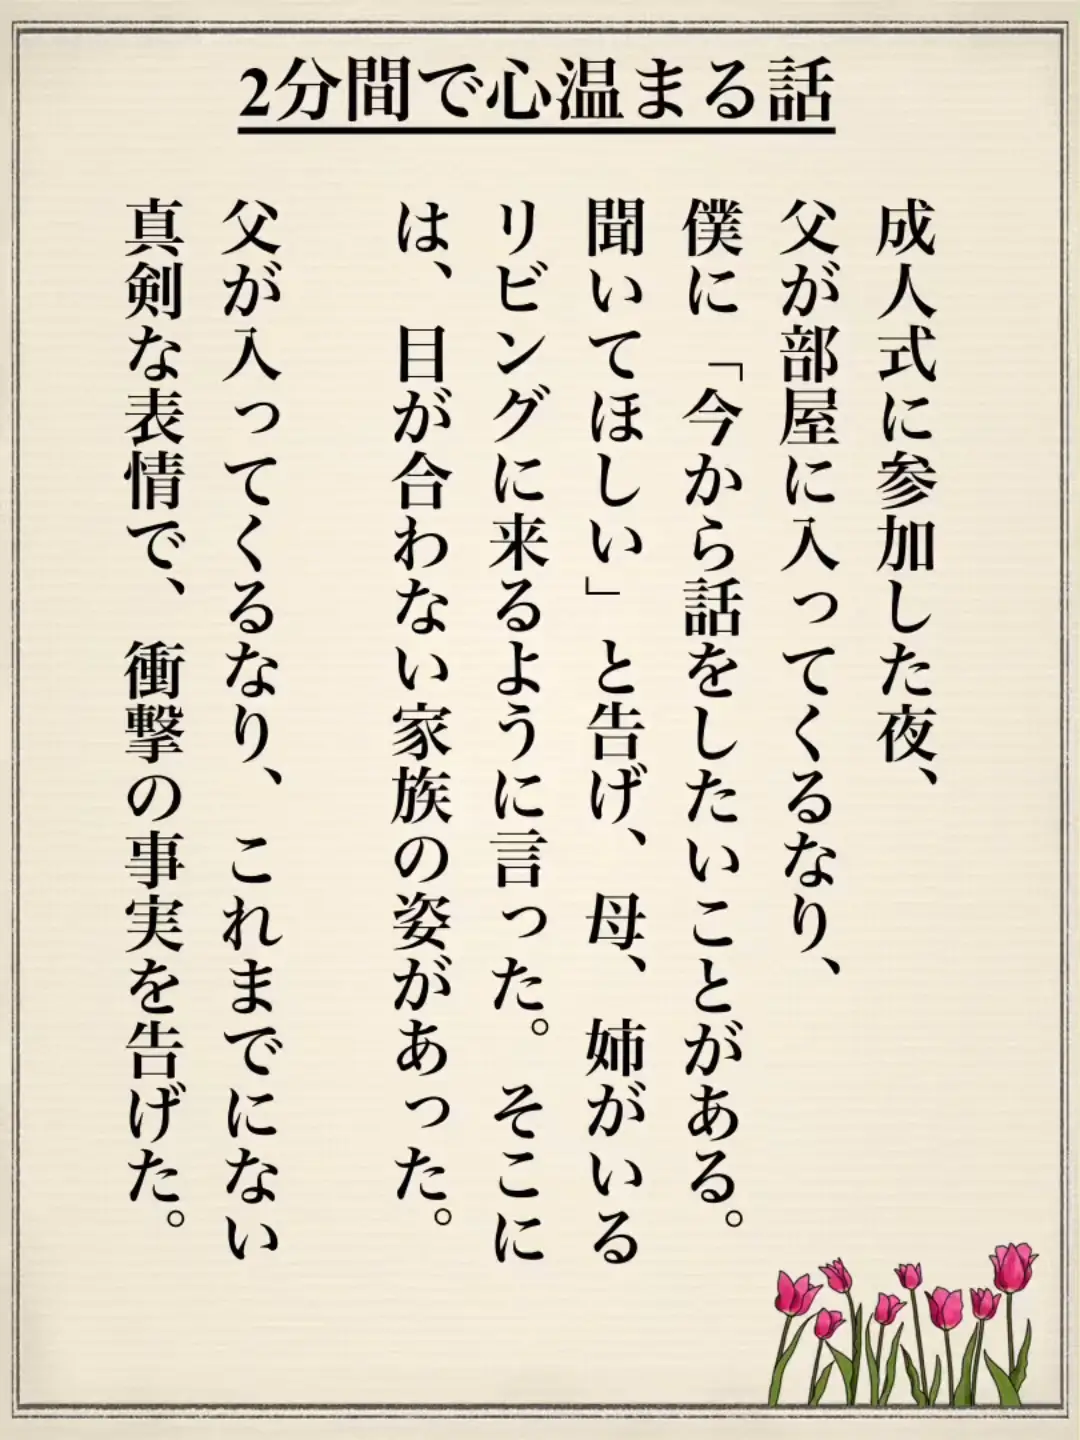 2分間で心温まる話
成人式に参加した夜、
父が部屋に入ってくるなり、
僕に「今から話をしたいことがある。
聞いてほしい」と告げ、母、姉がいる
リビングに来るように言った。そこに
は、目が合わない家族の姿があった。
父が入ってくるなり、これまでにない
真剣な表情で、衝撃の事実を告げた。